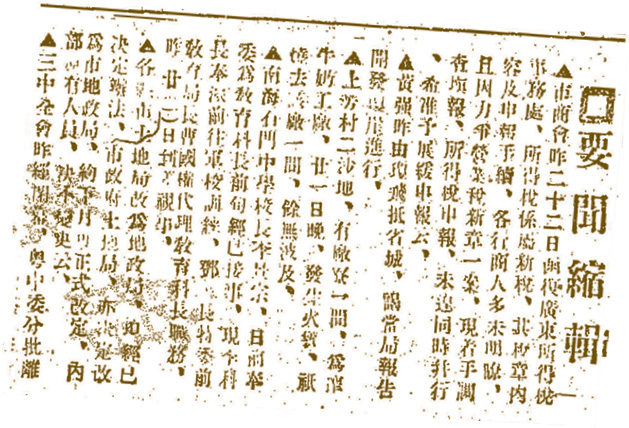 要聞縮輯
▲市商會昨二十二日函復廣東所得稅
事務處、所得稅係屬新稅、其稅章內
容及申報手續、各行商人多未明瞭、
且因力爭營業稅新章一案、現着手調
查填報、所得稅申報、未遑同時幷行
、希准予展緩申報云、
▲黃强昨由 飛抵省城、謁當局報告
開發 進行、
▲上芳村二 地、有廠寮一間、爲
牛奶 廠、廿一日晚、發生火警、祇
燒去 廠一間、餘無波及、
▲南海石門中學校長李 宗、日前奉
委爲教育科長前旬經已接事、現李科
長奉派前往軍校訓練、鄧 長特委前
教育局長曹國權代理教育科長職務、
昨廿 日到 視事、
▲各 市土地局改爲地政局、 經已
決定辦法、市政府土地局、亦 定改
爲市地政局、約 月 正式改定、內
部 有人員、決不 更云、
▲三中全會昨經閉幕、粤中委分批離